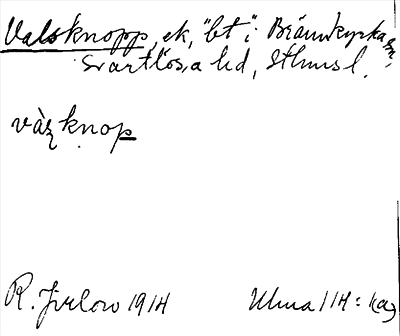 Valsknopp, ek, "bt" i Brännkyrka sn,
Svartlösa hd, Sthms l.
vàʒknop
R. Jirlow 1914 Ulma 114: